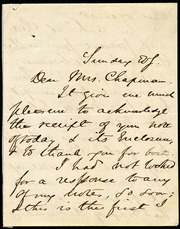 Sunday
Dear Mrs. Chapman
It gives me much
pleasure to acknowledge
the receipt of your note
of today & its Enclosure,
& to thank you for both
I had not looked
for a response to any
of my notes, so soon
& this is the first I